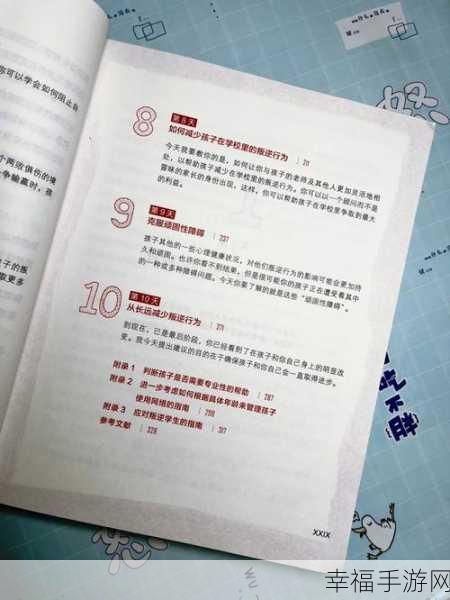 你可以学会如何阻止翰
个两败俱伤的境
争输赢时，孩
子的叛
取更多
8 第8天
如何减少孩子在学校里的叛逆行为 | 211
今天我要教你的是，如何让你与孩子的老师及其他人更加灵活地相
处，以帮助孩子减少在学校里的叛逆行为。你可以以一个顾问而不是
冒昧的家长的身份出现，这样，你可以帮助孩子在学校里争取到最大
的利益。
9 第9天
克服顽固性障碍 | 237
孩子其他的一些心理健康状况，对他们叛逆行为的影响可能会更加持
久和顽固。也许你看不到结果，但是很可能你的孩子正在遭受着其中
的一种或多种障碍问题。今天你要了解的就是这些“顽固性障碍”。
10 第10天
从长远减少叛逆行为 | 271
到现在，已是最后阶段，你已经看到了在孩子和你自己身上的明显改
变。我今天提出建议的目的在于确保孩子和你自己会一直取得进步。
附录1 判断孩子是否需要专业性的帮助 | 287
附录2 进一步考虑如何根据具体年龄来管理孩子
使用网络的指南 | 298
附录3 应对叛逆学生的指南 | 317
参考文献 | 328
XXIX
幸福手游网